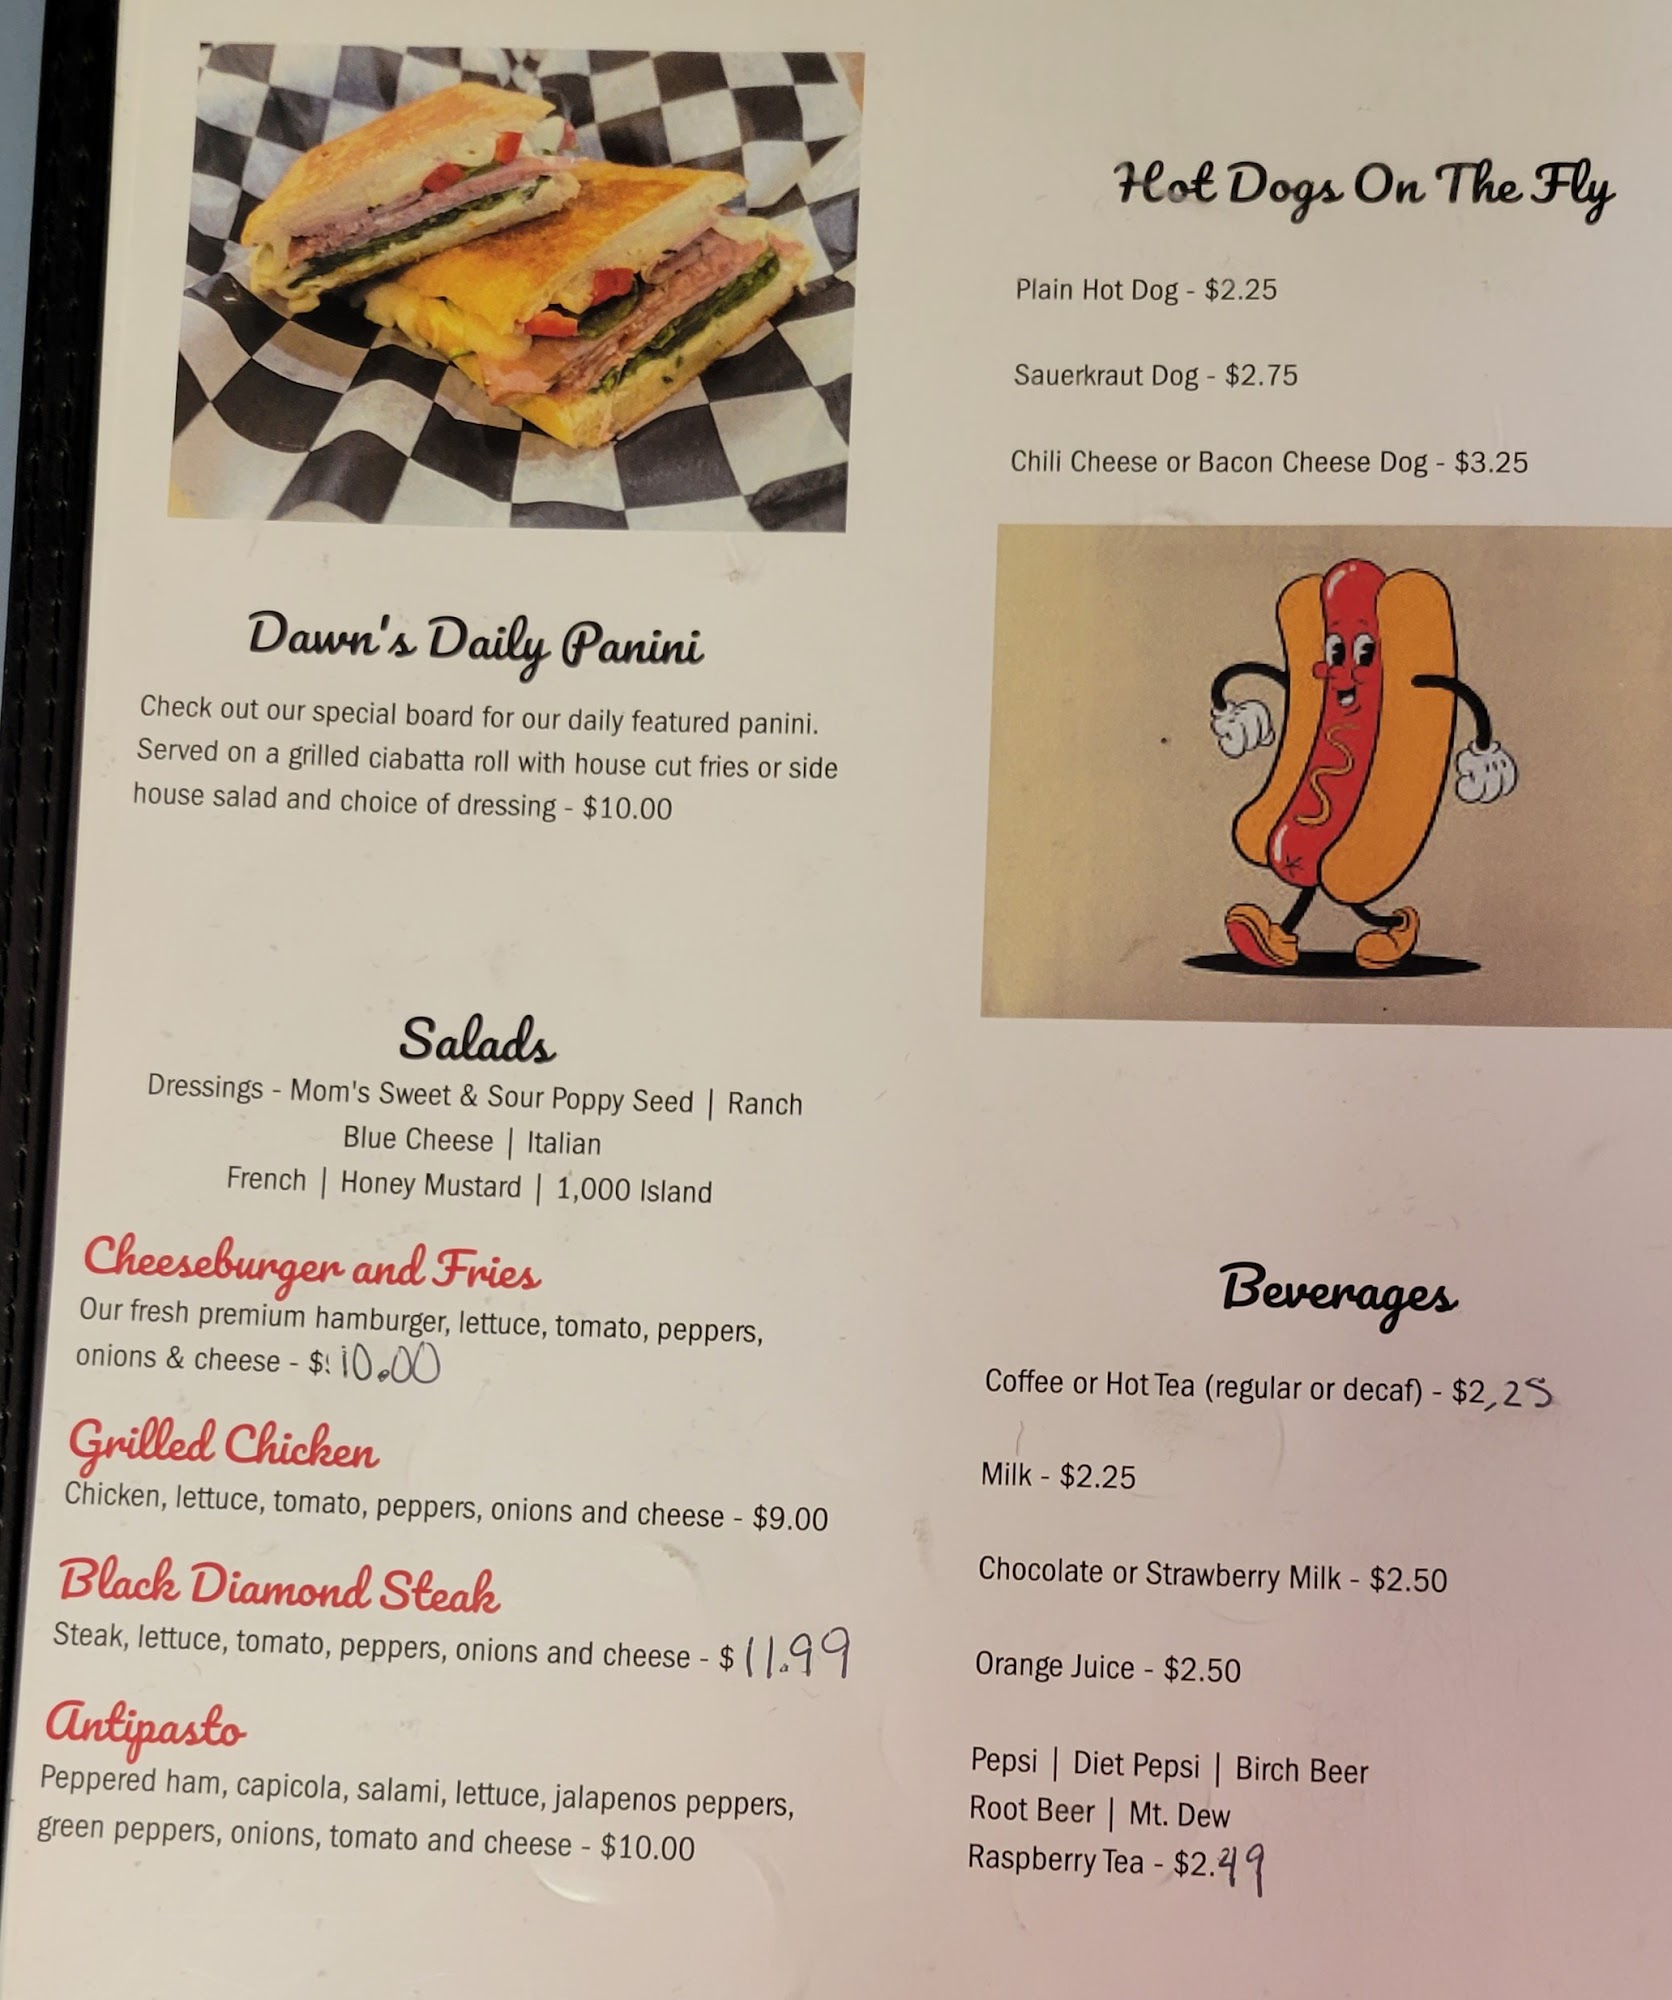 Dawn's Daily Panini
Check out our special board for our daily featured panini.
Served on a grilled ciabatta roll with house cut fries or side
house salad and choice of dressing - $10.00
Salads
Dressings - Mom's Sweet & Sour Poppy Seed | Ranch
Blue Cheese | Italian
French | Honey Mustard | 1,000 Island
Cheeseburger and Fries
Our fresh premium hamburger, lettuce, tomato, peppers,
onions & cheese - $10.00
Grilled Chicken
Chicken, lettuce, tomato, peppers, onions and cheese - $9.00
Black Diamond Steak
Steak, lettuce, tomato, peppers, onions and cheese - $11.99
Antipasto
Peppered ham, capicola, salami, lettuce, jalapenos peppers,
green peppers, onions, tomato and cheese - $10.00
Hot Dogs On The Fly
Plain Hot Dog - $2.25
Sauerkraut Dog - $2.75
Chili Cheese or Bacon Cheese Dog - $3.25
Beverages
Coffee or Hot Tea (regular or decaf) - $2,25
Milk - $2.25
Chocolate or Strawberry Milk - $2.50
Orange Juice - $2.50
Pepsi | Diet Pepsi | Birch Beer
Root Beer | Mt. Dew
Raspberry Tea - $2.49